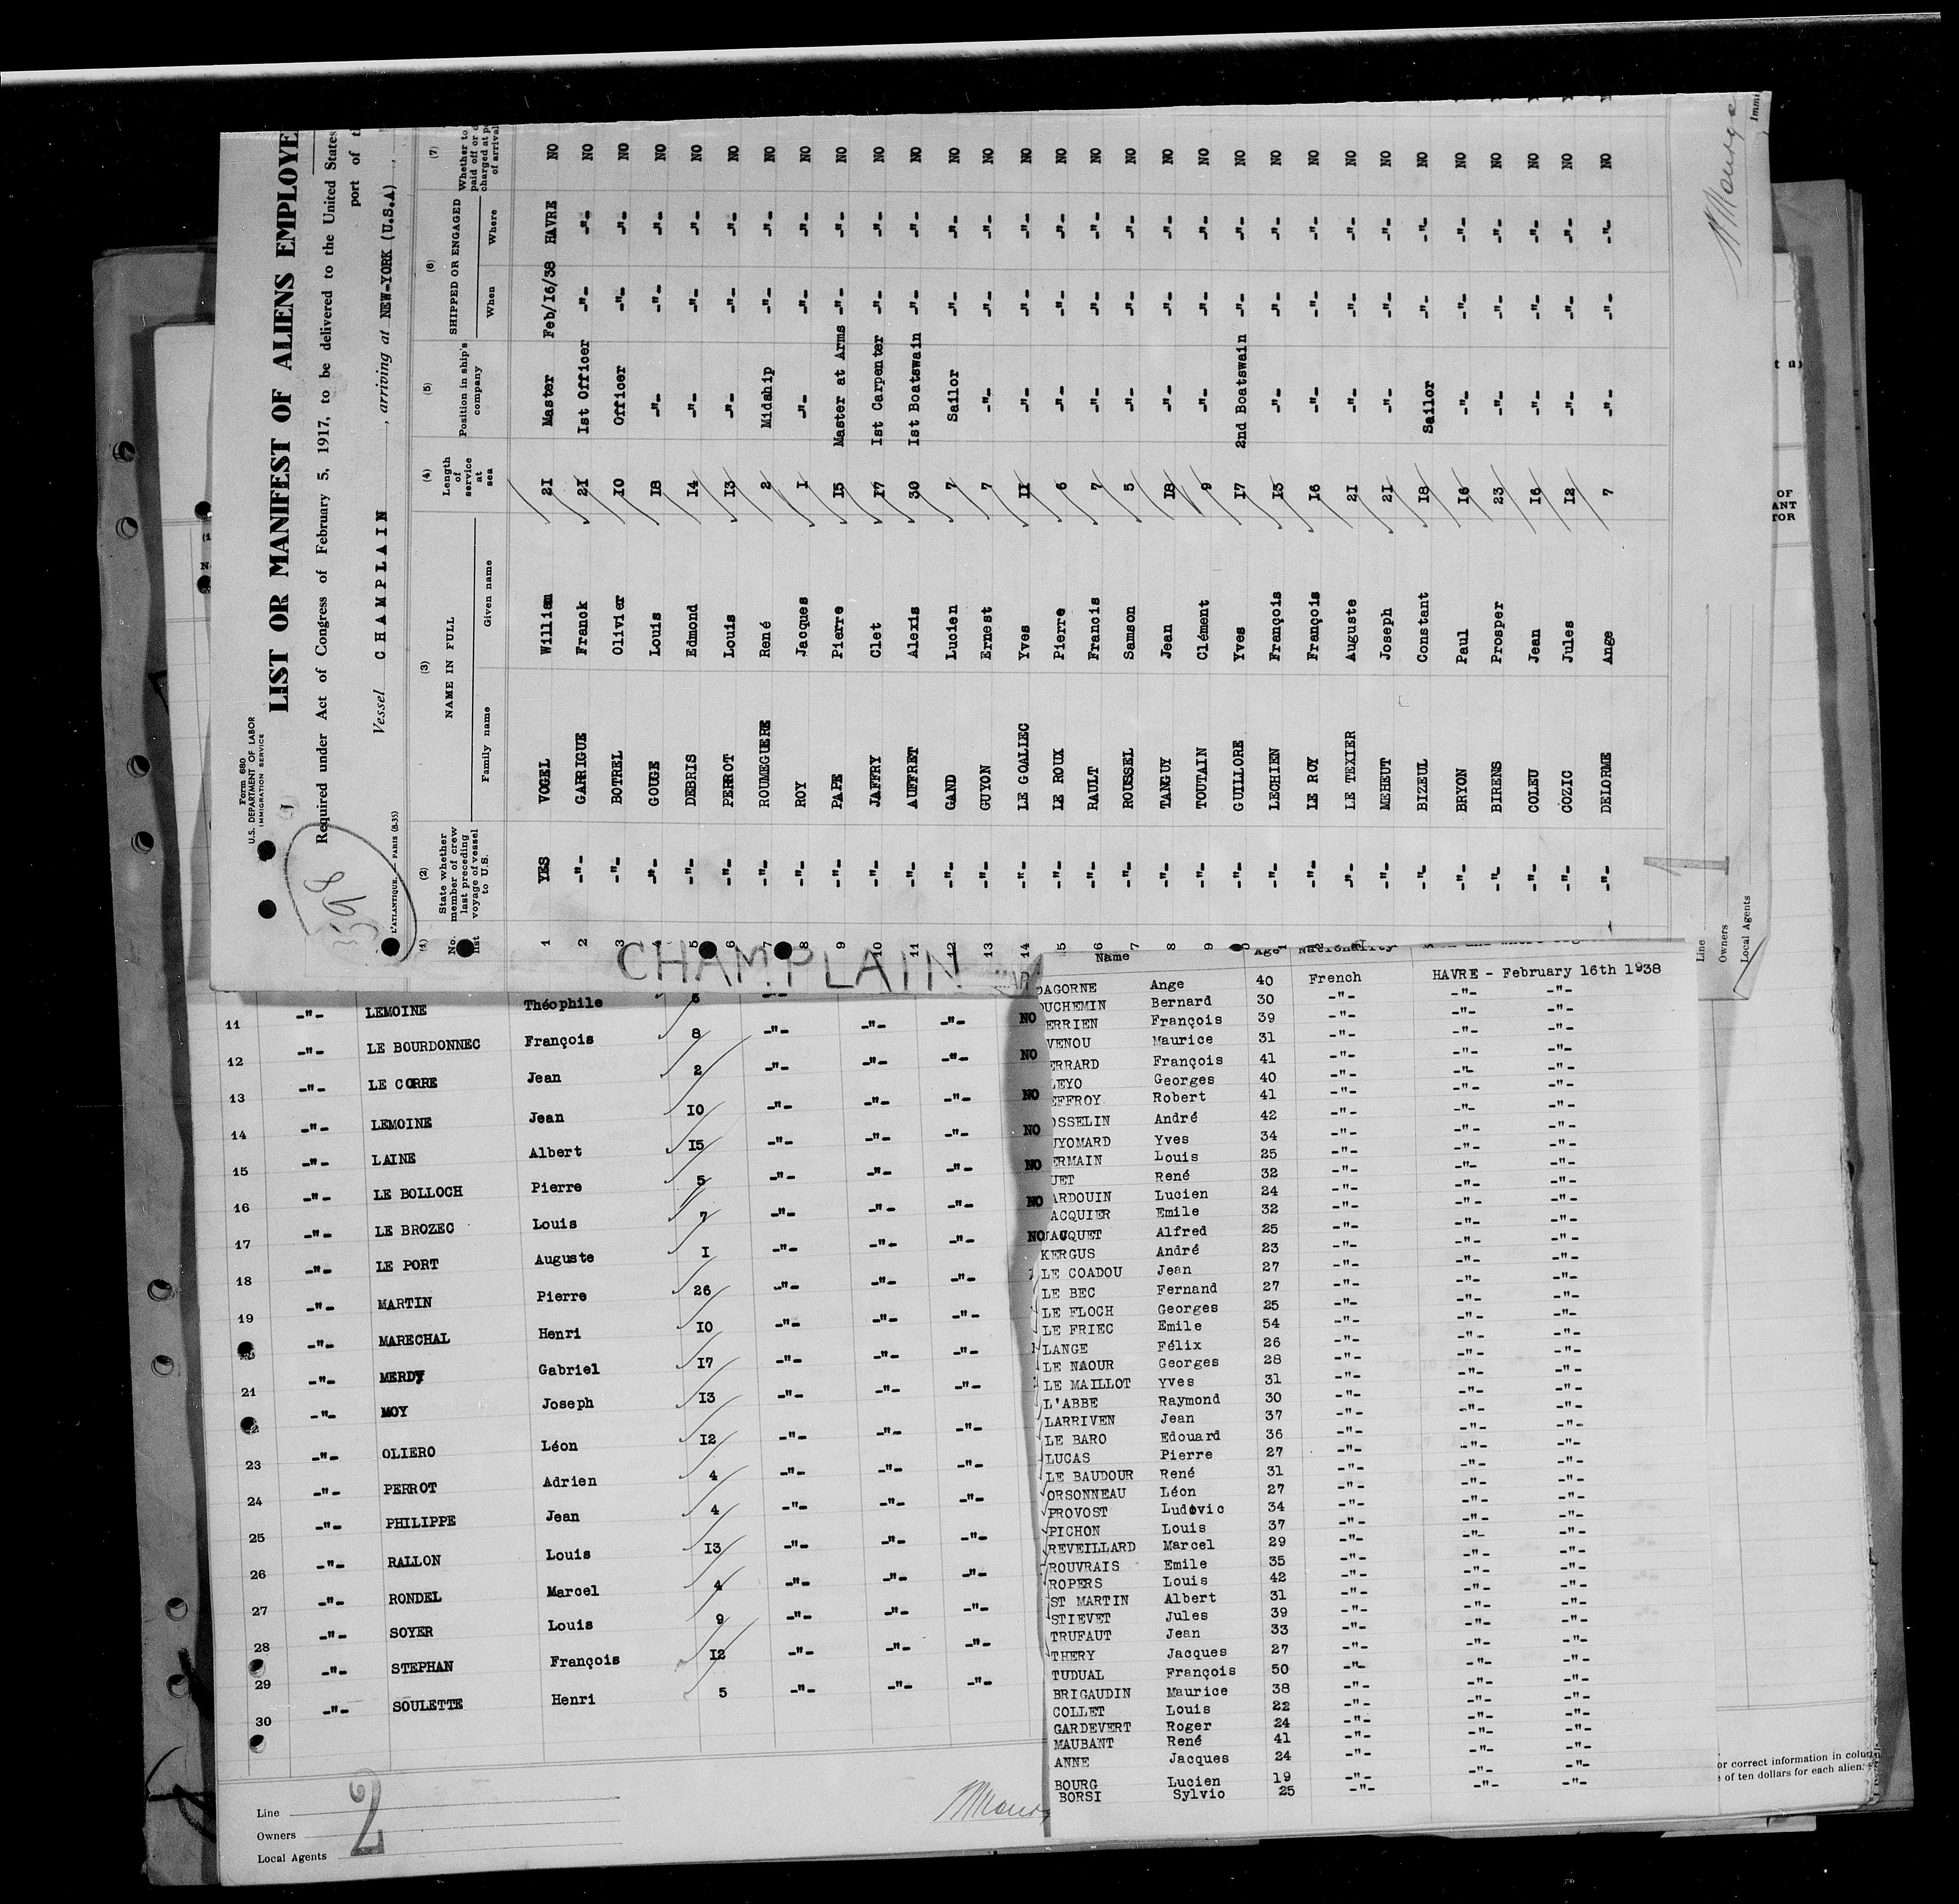 Form 680
U.S. DEPARTMENT OF LABOR
IMMIGRATION SERVICE
598
LIST OR MANIFEST OF ALIENS EMPLOYE
Required under Act of Congress of February 5, 1917, to be delivered to the United States
port of t
Vessel CHAMPLAIN, arriving at NEW-YORK (U.S.A)
L'ATLANTIQUE. — PARIS (8-35)
(1) (2) (3) (4) (5) (6) (7)
No. list
State whether member of crew last preceding voyage of vessel to U.S.
NAME IN FULL
Family name Given name
Length of service at sea
Position in ship's company
SHIPPED OR ENGAGED
When Where
Whether to paid off or charged at of arrival
1 YES VOGEL William 21 Master Feb/16/38 HAVRE NO
2 -"- GARRIGUE Franck 21 1st Officer -"- -"- NO
3 -"- BOTREL Olivier 10 Officer -"- -"- NO
4 -"- GOUGE Louis 18 -"- -"- -"- NO
5 -"- DEBRIS Edmond 14 -"- -"- -"- NO
6 -"- PERROT Louis 13 -"- -"- -"- NO
7 -"- ROUMEGUERE René 2 Midship -"- -"- NO
8 -"- ROY Jacques 1 -"- -"- -"- NO
9 -"- PAPE Pierre 15 Master at Arms -"- -"- NO
10 -"- JAFFRY Clet 17 1st Carpenter -"- -"- NO
11 -"- AUFFRET Alexis 30 1st Boatswain -"- -"- NO
12 -"- GAND Lucien 7 Sailor -"- -"- NO
13 -"- GUYON Ernest 7 -"- -"- -"- NO
14 -"- LE GOALIEC Yves 11 -"- -"- -"- NO
15 -"- LE ROUX Pierre 6 -"- -"- -"- NO
6 -"- RAULT Francis 7 -"- -"- -"- NO
7 -"- ROUSSEL Samson 5 -"- -"- -"- NO
8 -"- TANGUY Jean 18 -"- -"- -"- NO
9 -"- TOUTAIN Clément 9 -"- -"- -"- NO
0 -"- GUILLORE Yves 17 2nd Boatswain -"- -"- NO
1 -"- LECHIEN François 13 -"- -"- -"- NO
2 -"- LE ROY François 16 -"- -"- -"- NO
-"- LE TEXIER Auguste 21 -"- -"- -"- NO
-"- MEHEUT Joseph 21 -"- -"- -"- NO
-"- BIZEUL Constant 18 Sailor -"- -"- NO
-"- BRYON Paul 16 -"- -"- -"- NO
-"- BIRENS Prosper 23 -"- -"- -"- NO
-"- COLEU Jean 16 -"- -"- -"- NO
-"- COZIC Jules 12 -"- -"- -"- NO
-"- DELORME Ange 7 -"- -"- -"- NO
1
Line
Owners
Local Agents
Immi
CHAMPLAIN
-"- LEMOINE Théophile 6 -"-
11 -"- LE BOURDONNEC François 8 -"- -"- -"- NO
12 -"- LE CORRE Jean 2 -"- -"- -"- NO
13 -"- LEMOINE Jean 10 -"- -"- -"- NO
14 -"- LAINE Albert 15 -"- -"- -"- NO
15 -"- LE BOLLOCH Pierre 5 -"- -"- -"- NO
16 -"- LE BROZEC Louis 7 -"- -"- -"- NO
17 -"- LE PORT Auguste 1 -"- -"- -"- NO
18 -"- MARTIN Pierre 26 -"- -"- -"-
19 -"- MARECHAL Henri 10 -"- -"- -"-
-"- MERDY Gabriel 17 -"- -"- -"-
21 -"- MOY Joseph 13 -"- -"- -"-
2 -"- OLIERO Léon 12 -"- -"- -"-
23 -"- PERROT Adrien 4 -"- -"- -"-
24 -"- PHILIPPE Jean 4 -"- -"- -"-
25 -"- RALLON Louis 13 -"- -"- -"-
26 -"- RONDEL Marcel 4 -"- -"- -"-
27 -"- SOYER Louis 9 -"- -"- -"-
28 -"- STEPHAN François 12 -"- -"- -"-
29 -"- SOULETTE Henri 5 -"- -"- -"-
30
Line
Owners
Local Agents
2
Name Age Nationality
DAGORNE Ange 40 French HAVRE - February 16th 1938
DUCHEMIN Bernard 30 -"- -"- -"-
ERRIEN François 39 -"- -"- -"-
VENOU Maurice 31 -"- -"- -"-
ERRARD François 41 -"- -"- -"-
LEYO Georges 40 -"- -"- -"-
EFFROY Robert 41 -"- -"- -"-
OSSELIN André 42 -"- -"- -"-
UYOMARD Yves 34 -"- -"- -"-
ERMAIN Louis 25 -"- -"- -"-
UET René 32 -"- -"- -"-
ARDOUIN Lucien 24 -"- -"- -"-
ACQUIER Emile 32 -"- -"- -"-
JACQUET Alfred 25 -"- -"- -"-
KERGUS André 23 -"- -"- -"-
LE COADOU Jean 27 -"- -"- -"-
LE BEC Fernand 27 -"- -"- -"-
LE FLOCH Georges 25 -"- -"- -"-
LE FRIEC Emile 54 -"- -"- -"-
LANGE Félix 26 -"- -"- -"-
LE NAOUR Georges 28 -"- -"- -"-
LE MAILLOT Yves 31 -"- -"- -"-
L'ABBE Raymond 30 -"- -"- -"-
LARRIVEN Jean 37 -"- -"- -"-
LE BARO Edouard 36 -"- -"- -"-
LUCAS Pierre 27 -"- -"- -"-
LE BAUDOUR René 31 -"- -"- -"-
ORSONNEAU Léon 27 -"- -"- -"-
PROVOST Ludovic 34 -"- -"- -"-
PICHON Louis 37 -"- -"- -"-
REVEILLARD Marcel 29 -"- -"- -"-
ROUVRAIS Emile 35 -"- -"- -"-
ROPERS Louis 42 -"- -"- -"-
ST MARTIN Albert 31 -"- -"- -"-
STIEVET Jules 39 -"- -"- -"-
TRUFAUT Jean 33 -"- -"- -"-
THERY Jacques 27 -"- -"- -"-
TUDUAL François 50 -"- -"- -"-
BRIGAUDIN Maurice 38 -"- -"- -"-
COLLET Louis 22 -"- -"- -"-
GARDEVERT Roger 24 -"- -"- -"-
MAUBANT René 41 -"- -"- -"-
ANNE Jacques 24 -"- -"- -"-
BOURG Lucien 19 -"- -"- -"-
BORSI Sylvio 25 -"- -"- -"-
OF
ANT
TOR
or correct information in colu
of ten dollars for each alien.